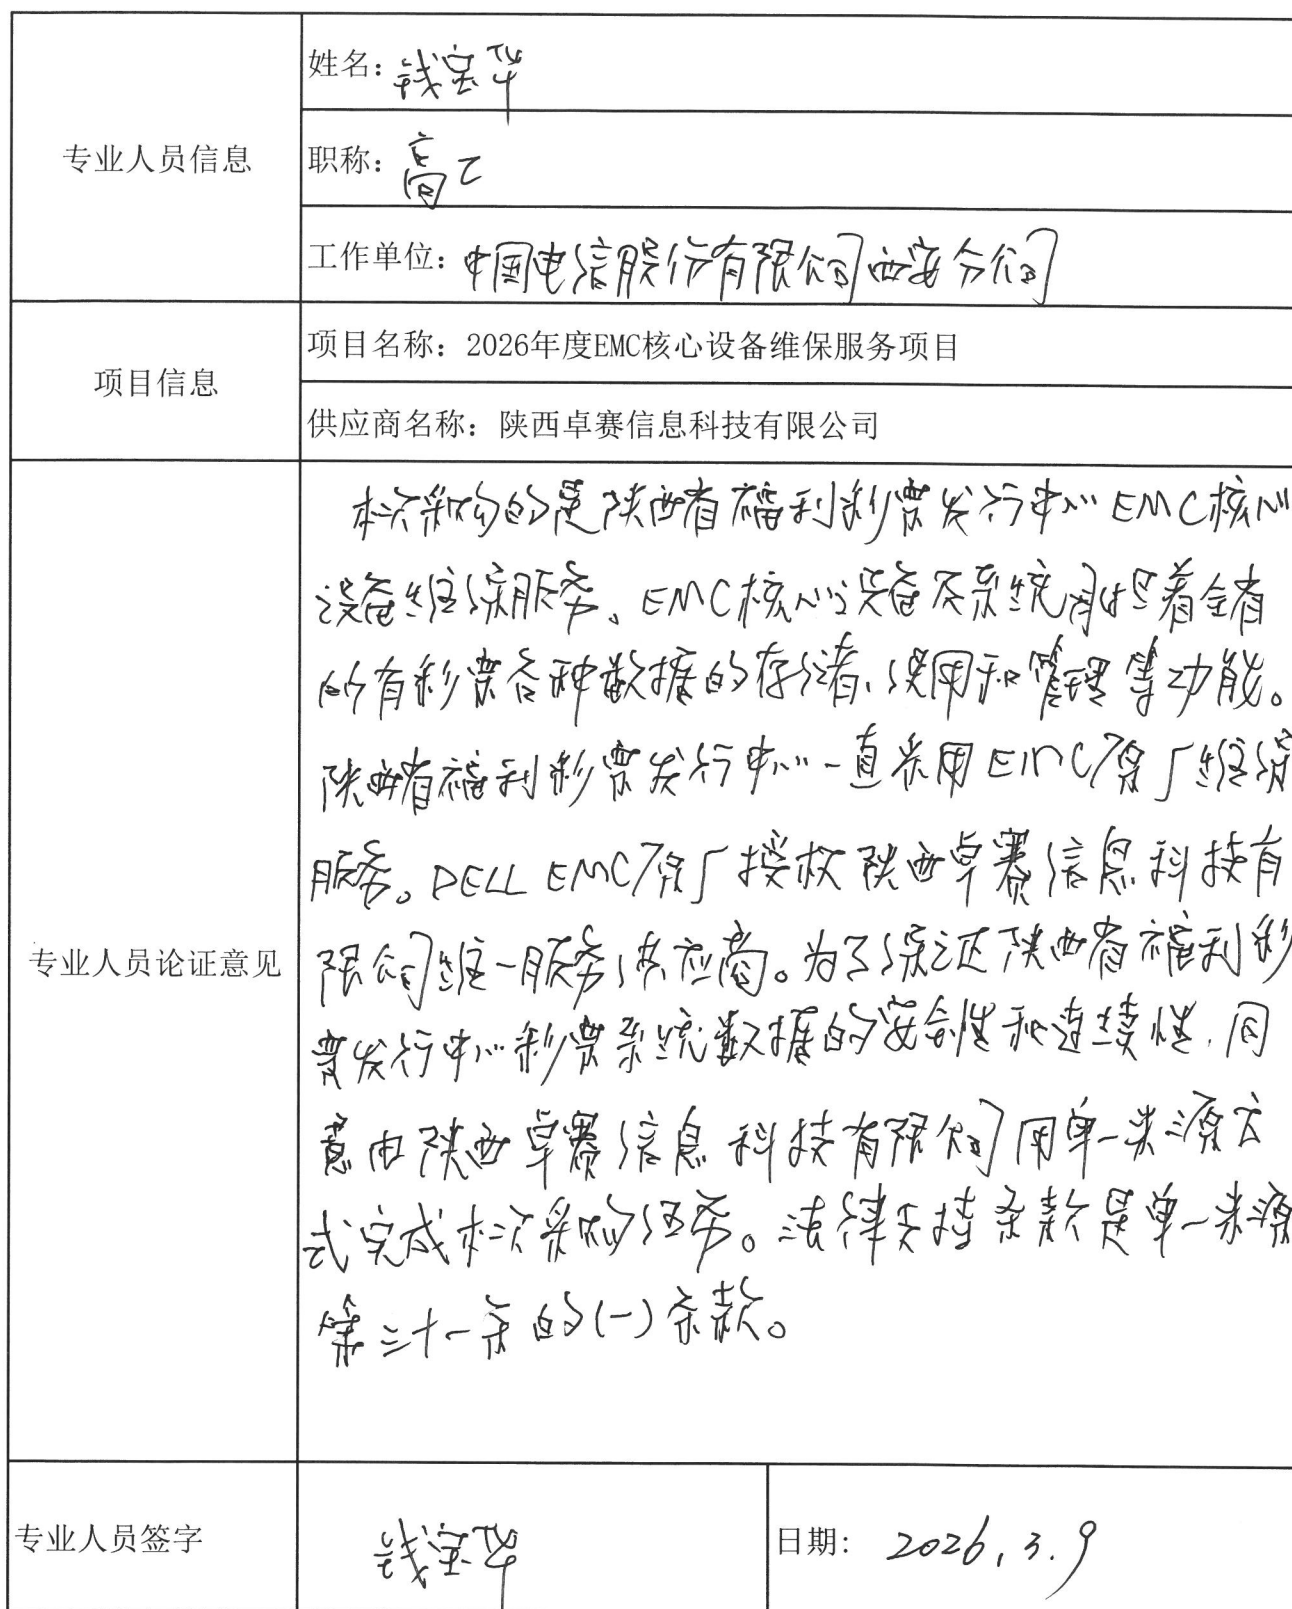 专业人员信息
姓名：钱宝华
职称：高工
工作单位：中国电信股份有限公司西安分公司
项目信息
项目名称：2026年度EMC核心设备维保服务项目
供应商名称：陕西卓赛信息科技有限公司
专业人员论证意见
本次采购的是陕西省福利彩票发行中心EMC核心
设备维保服务。EMC核心设备及系统肩担着全省
所有彩票各种数据的存储、使用和管理等功能。
陕西省福利彩票发行中心一直采用EMC原厂维保
服务。DELL EMC原厂授权陕西卓赛信息科技有
限公司唯一服务供应商。为了保证陕西省福利彩
票发行中心彩票系统数据的安全性和连续性，同
意由陕西卓赛信息科技有限公司用单一来源方
式完成本次采购任务。法律支持条款是单一来源
第三十一条的(一)条款。
专业人员签字
钱宝华
日期：2026.3.9